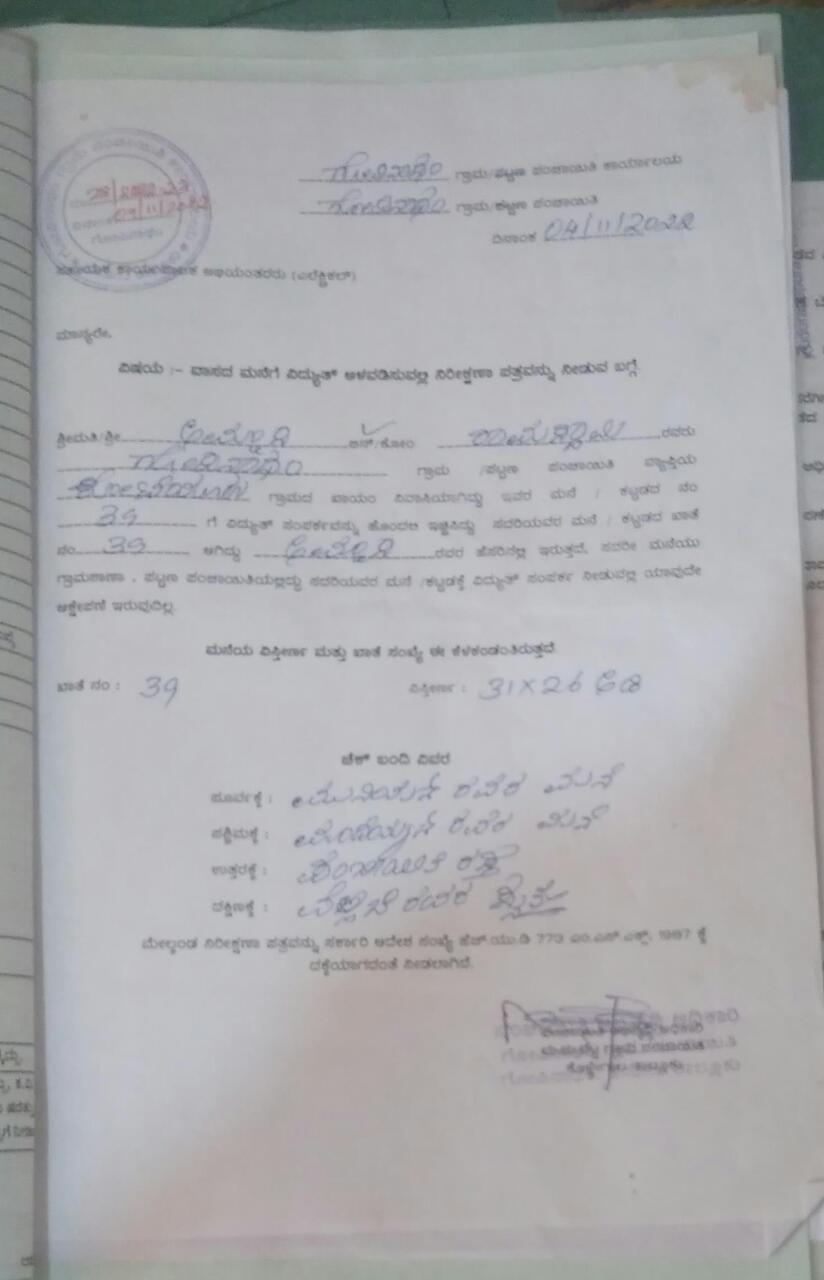 ಗೋಪಿನಾಥಂ ಗ್ರಾಮ/ಪಟ್ಟಣ ಪಂಚಾಯಿತಿ ಕಾರ್ಯಾಲಯ
ಗೋಪಿನಾಥಂ ಗ್ರಾಮ/ಪಟ್ಟಣ ಪಂಚಾಯಿತಿ
ದಿನಾಂಕ 04/11/2022
ಸಹಾಯಕ ಕಾರ್ಯಪಾಲಕ ಅಭಿಯಂತರರು (ಎಲೆಕ್ಟ್ರಿಕಲ್)
ಮಾನ್ಯರೇ,
ವಿಷಯ :- ವಾಸದ ಮನೆಗೆ ವಿದ್ಯುತ್ ಅಳವಡಿಸುವಲ್ಲಿ ನಿರೀಕ್ಷಣಾ ಪತ್ರವನ್ನು ನೀಡುವ ಬಗ್ಗೆ.
ಶ್ರೀಮತಿ/ಶ್ರೀ ಬಿನ್/ಕೋಂ ರವರು
ಗೋಪಿನಾಥಂ ಗ್ರಾಮ /ಪಟ್ಟಣ ಪಂಚಾಯಿತಿ ವ್ಯಾಪ್ತಿಯ
ಗ್ರಾಮದ ಖಾಯಂ ನಿವಾಸಿಯಾಗಿದ್ದು ಇವರ ಮನೆ / ಕಟ್ಟಡದ ನಂ
39 ಗೆ ವಿದ್ಯುತ್ ಸಂಪರ್ಕವನ್ನು ಹೊಂದಲು ಇಚ್ಛಿಸಿದ್ದು ಸದರಿಯವರ ಮನೆ / ಕಟ್ಟಡದ ಖಾತೆ
ನಂ 39 ಆಗಿದ್ದು ರವರ ಹೆಸರಿನಲ್ಲಿ ಇರುತ್ತದೆ, ಸದರೀ ಮನೆಯು
ಗ್ರಾಮಠಾಣಾ , ಪಟ್ಟಣ ಪಂಚಾಯಿತಿಯಲ್ಲಿದ್ದು ಸದರಿಯವರ ಮನೆ /ಕಟ್ಟಡಕ್ಕೆ ವಿದ್ಯುತ್ ಸಂಪರ್ಕ ನೀಡುವಲ್ಲಿ ಯಾವುದೇ
ಆಕ್ಷೇಪಣೆ ಇರುವುದಿಲ್ಲ.
ಮನೆಯ ವಿಸ್ತೀರ್ಣ ಮತ್ತು ಖಾತೆ ಸಂಖ್ಯೆ ಈ ಕೆಳಕಂಡಂತಿರುತ್ತದೆ.
ಖಾತೆ ನಂ : 39 ವಿಸ್ತೀರ್ಣ : 31×26 ಅಡಿ
ಚೆಕ್ ಬಂದಿ ವಿವರ
ಪೂರ್ವಕ್ಕೆ : ಮುನಿಯನ್ ರವರ ಮನೆ
ಪಶ್ಚಿಮಕ್ಕೆ : ರವರ ಮನೆ
ಉತ್ತರಕ್ಕೆ : ಪಂಚಾಯಿತಿ ರಸ್ತೆ
ದಕ್ಷಿಣಕ್ಕೆ : ರವರ
ಮೇಲ್ಕಂಡ ನಿರೀಕ್ಷಣಾ ಪತ್ರವನ್ನು ಸರ್ಕಾರಿ ಆದೇಶ ಸಂಖ್ಯೆ ಹೆಚ್.ಯು.ಡಿ 773 ಎಂ.ಎನ್.ಎಕ್ಸ್. 1987 ಕ್ಕೆ
ದಕ್ಕೆಯಾಗದಂತೆ ನೀಡಲಾಗಿದೆ.